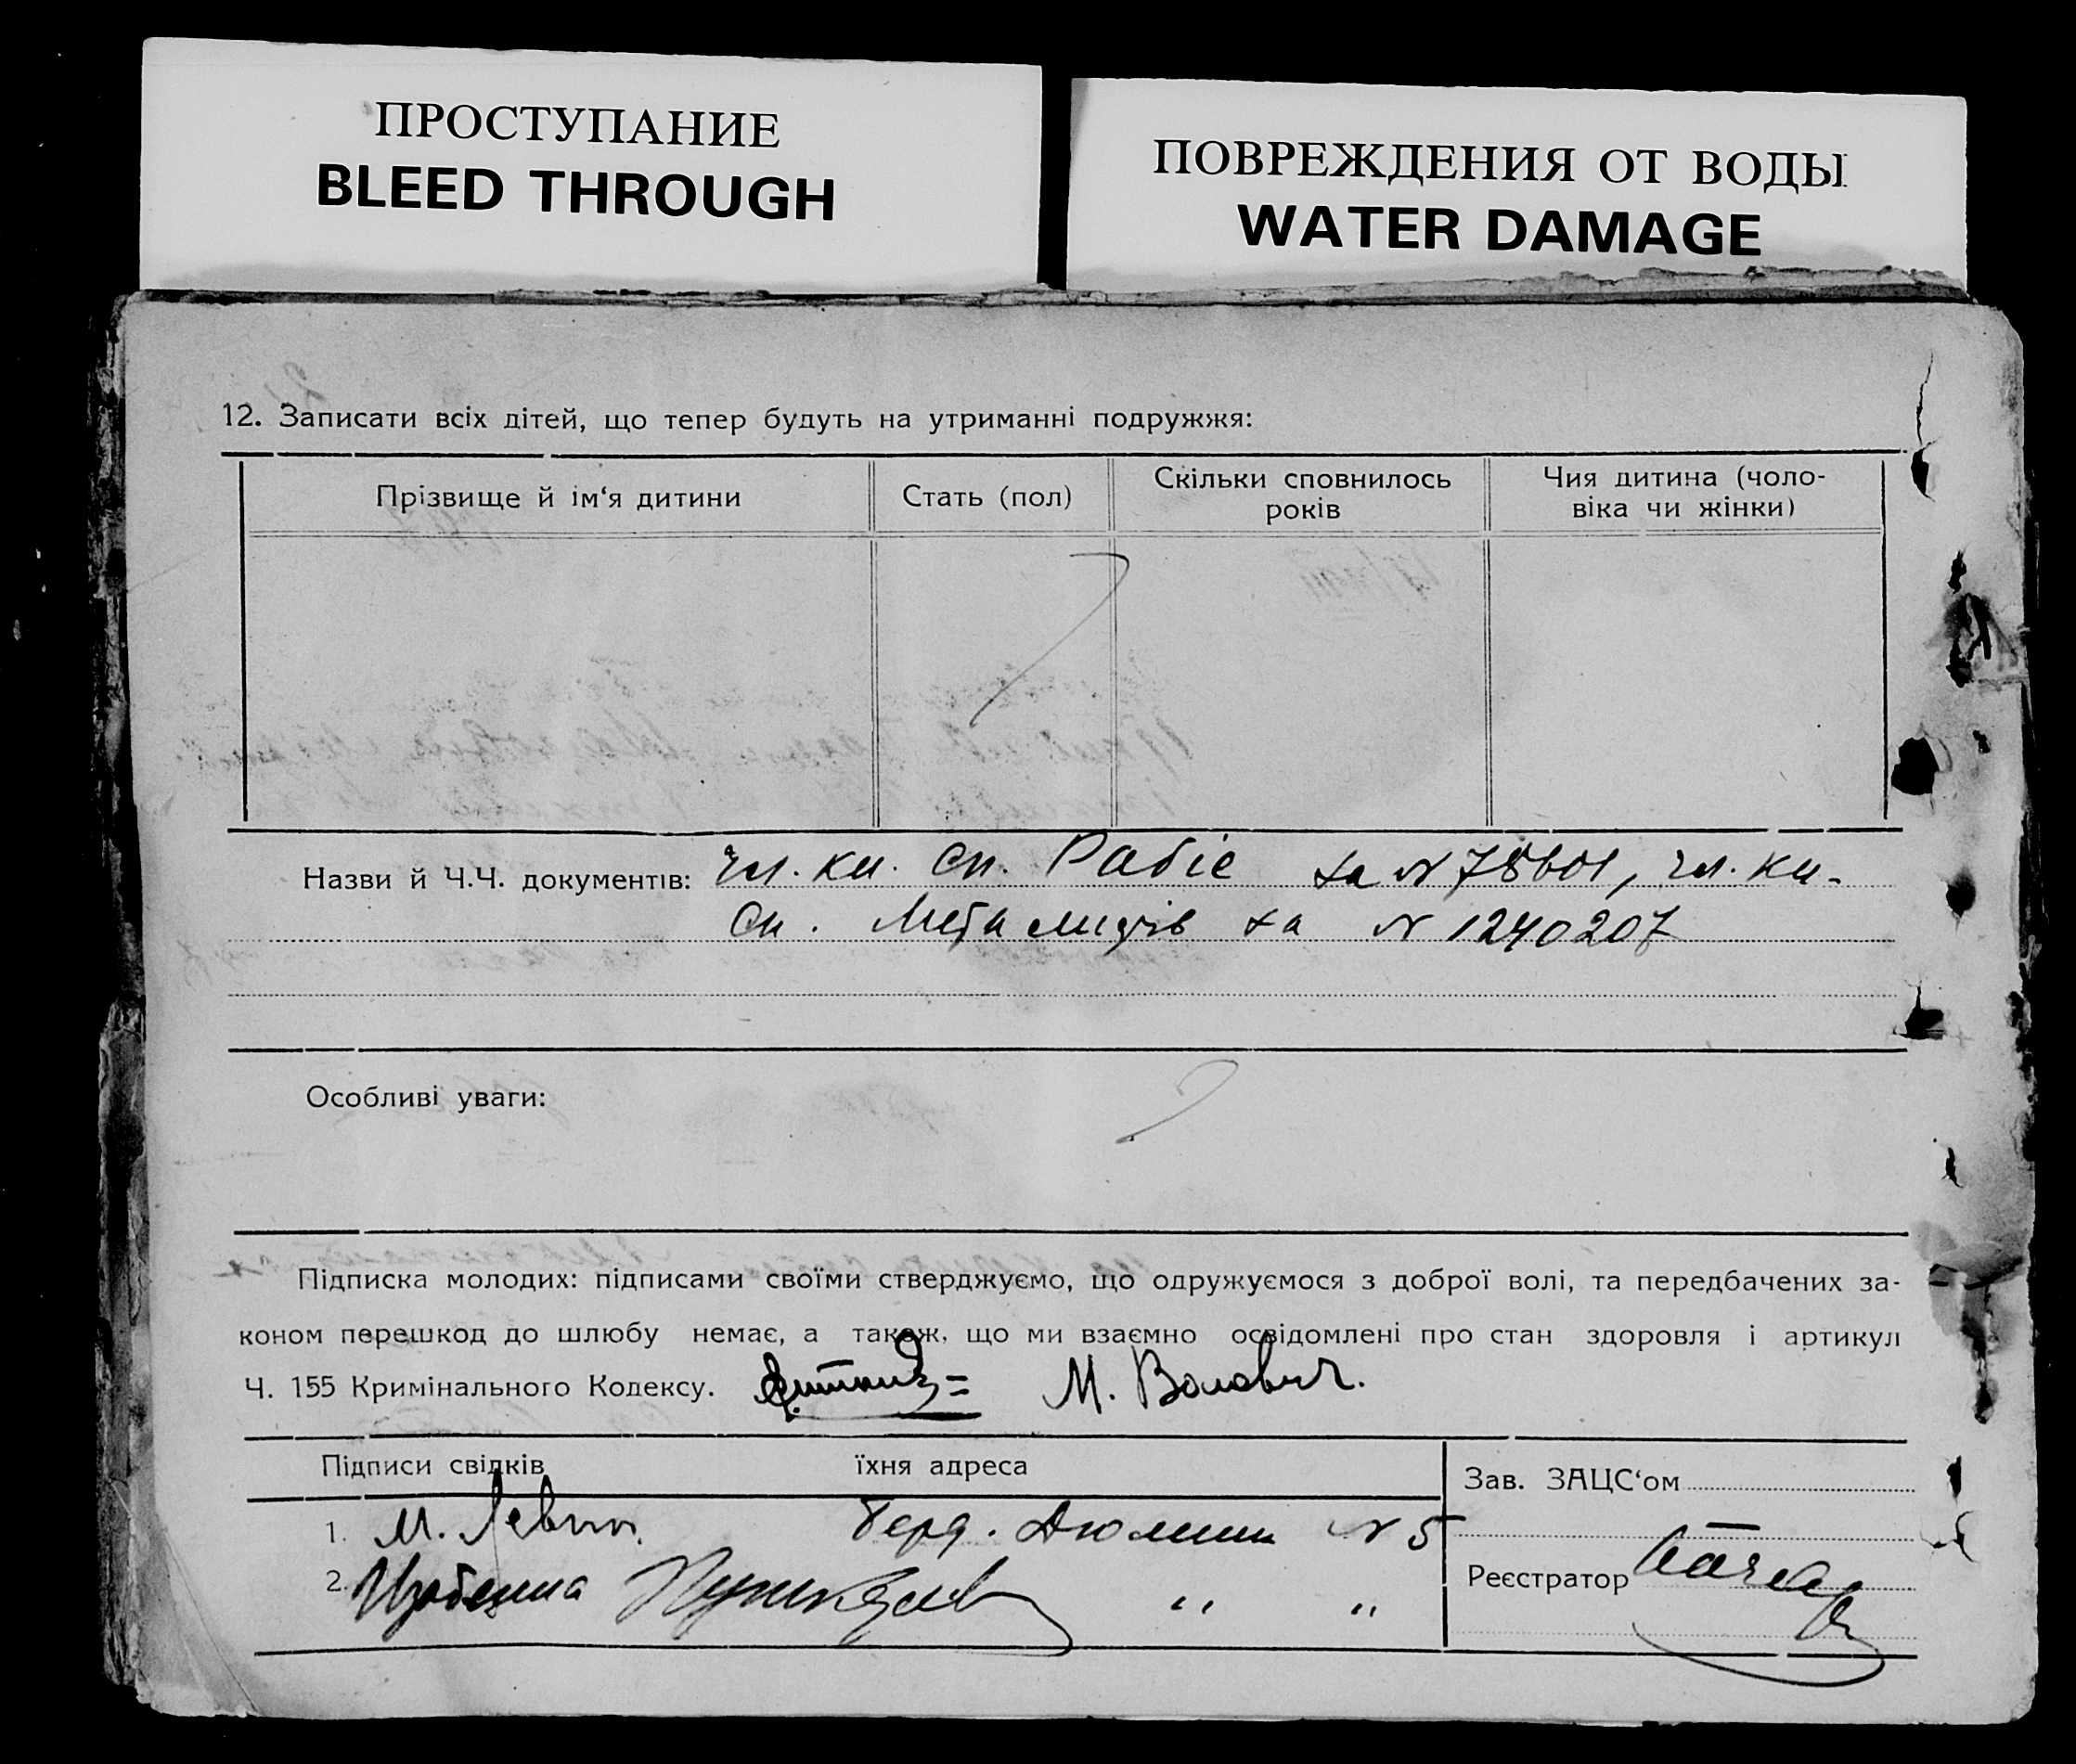 ПРОСТУПАНИЕ
BLEED THROUGH
ПОВРЕЖДЕНИЯ ОТ ВОДЫ
WATER DAMAGE
12. Записати всіх дітей, що тепер будуть на утриманні подружжя:
Прізвище й ім‘я дитини
Стать (пол)
Скільки сповнилось
років
Чия дитина (чоло-
віка чи жінки)
Назви й Ч.Ч. документів: чл. кн. сп. Робіс за N 78601, чл. кн.
сп. Металистів за N 1240207
Особливі уваги:
Підписка молодих: підписами своїми стверджуємо, що одружуємося з доброї волі, та передбачених за-
коном перешкод до шлюбу немає, а також, що ми взаємно освідомлені про стан здоровля і артикул
Ч. 155 Кримінального Кодексу. М. Волович.
Підписи свідків
їхня адреса
Зав. ЗАЦС‘ом
1. М. Левин. N 5
2. " "
Реєстратор